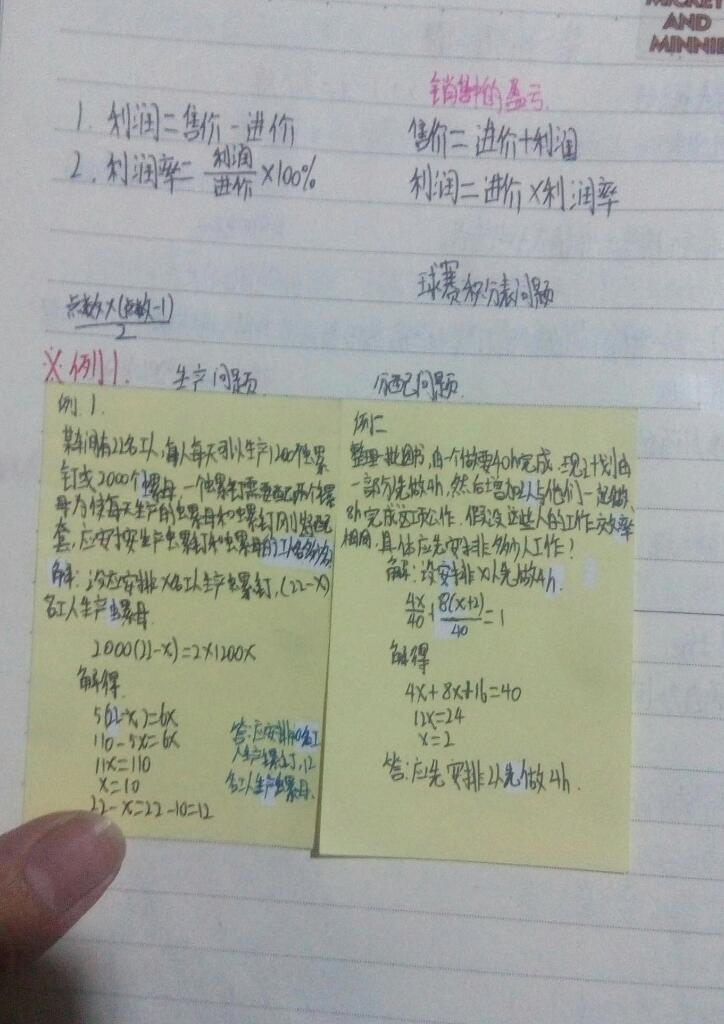 MICKEY
AND
MINNIE
销售中的盈亏
1. 利润=售价-进价
售价=进价+利润
2. 利润率=利润/进价×100%
利润=进价×利润率
球赛积分表问题
点数×(点数-1)/2
※例1.
生产问题
分配问题
例.1.
某车间有22名工人,每人每天可以生产1200个螺
钉或2000个螺母,一个螺钉需要配两个螺
母为使每天生产的螺母和螺钉刚好配
套,应安排生产螺钉和螺母的工人各多少名
解:设应安排x名工人生产螺钉,(22-x)
名工人生产螺母.
2000(22-x)=2×1200x
解得.
5(22-x)=6x
110-5x=6x
11x=110
x=10
22-x=22-10=12
答:应安排10名工
人生产螺钉,12
名工人生产螺母.
例二
整理一批图书,由一个做要40h完成.现计划由
一部分先做4h,然后增加2人与他们一起做
8h完成这项工作.假设这些人的工作效率
相同,具体应先安排多少人工作?
解:设安排x人先做4h.
4x/40+8(x+2)/40=1
解得
4x+8x+16=40
12x=24
x=2
答:应先安排2人先做4h.